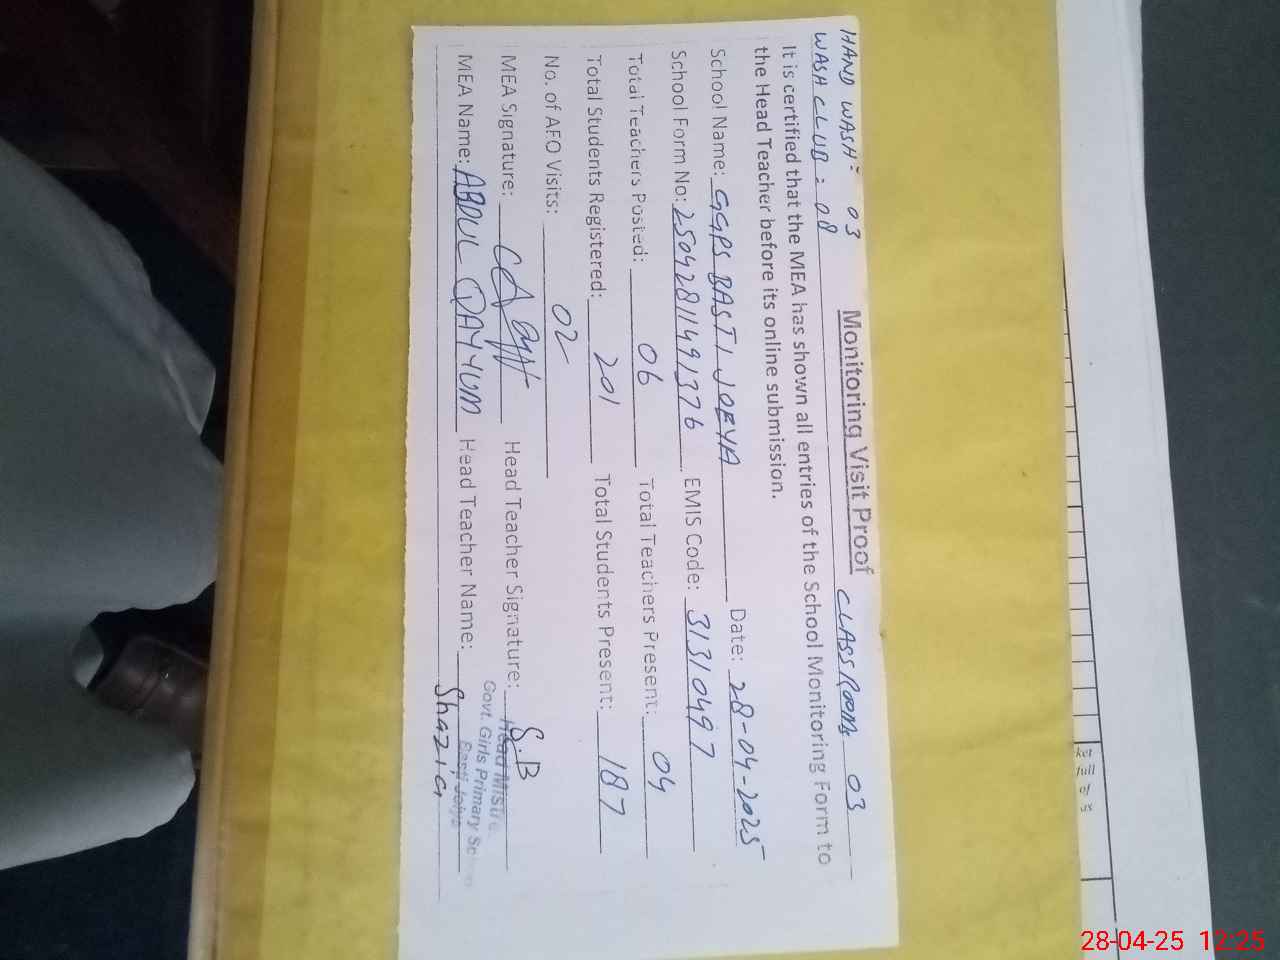 HAND WASH: 03
WASH CLUB: 08
CLASS ROOMS 03
Monitoring Visit Proof
It is certified that the MEA has shown all entries of the School Monitoring Form to
the Head Teacher before its online submission.
School Name: GGPS BASTI JOEYA Date: 28-04-2025
School Form No: 25042811491376 EMIS Code: 31310497
Total Teachers Posted: 06 Total Teachers Present: 04
Total Students Registered: 201 Total Students Present: 187
No. of AEO Visits: 02
MEA Signature: Head Teacher Signature: S.B
MEA Name: ABDUL QAYYUM Head Teacher Name: Shazia
Head Mistre
Govt. Girls Primary School
Basti Joiya
ket
full
of
as
28-04-25 12:25